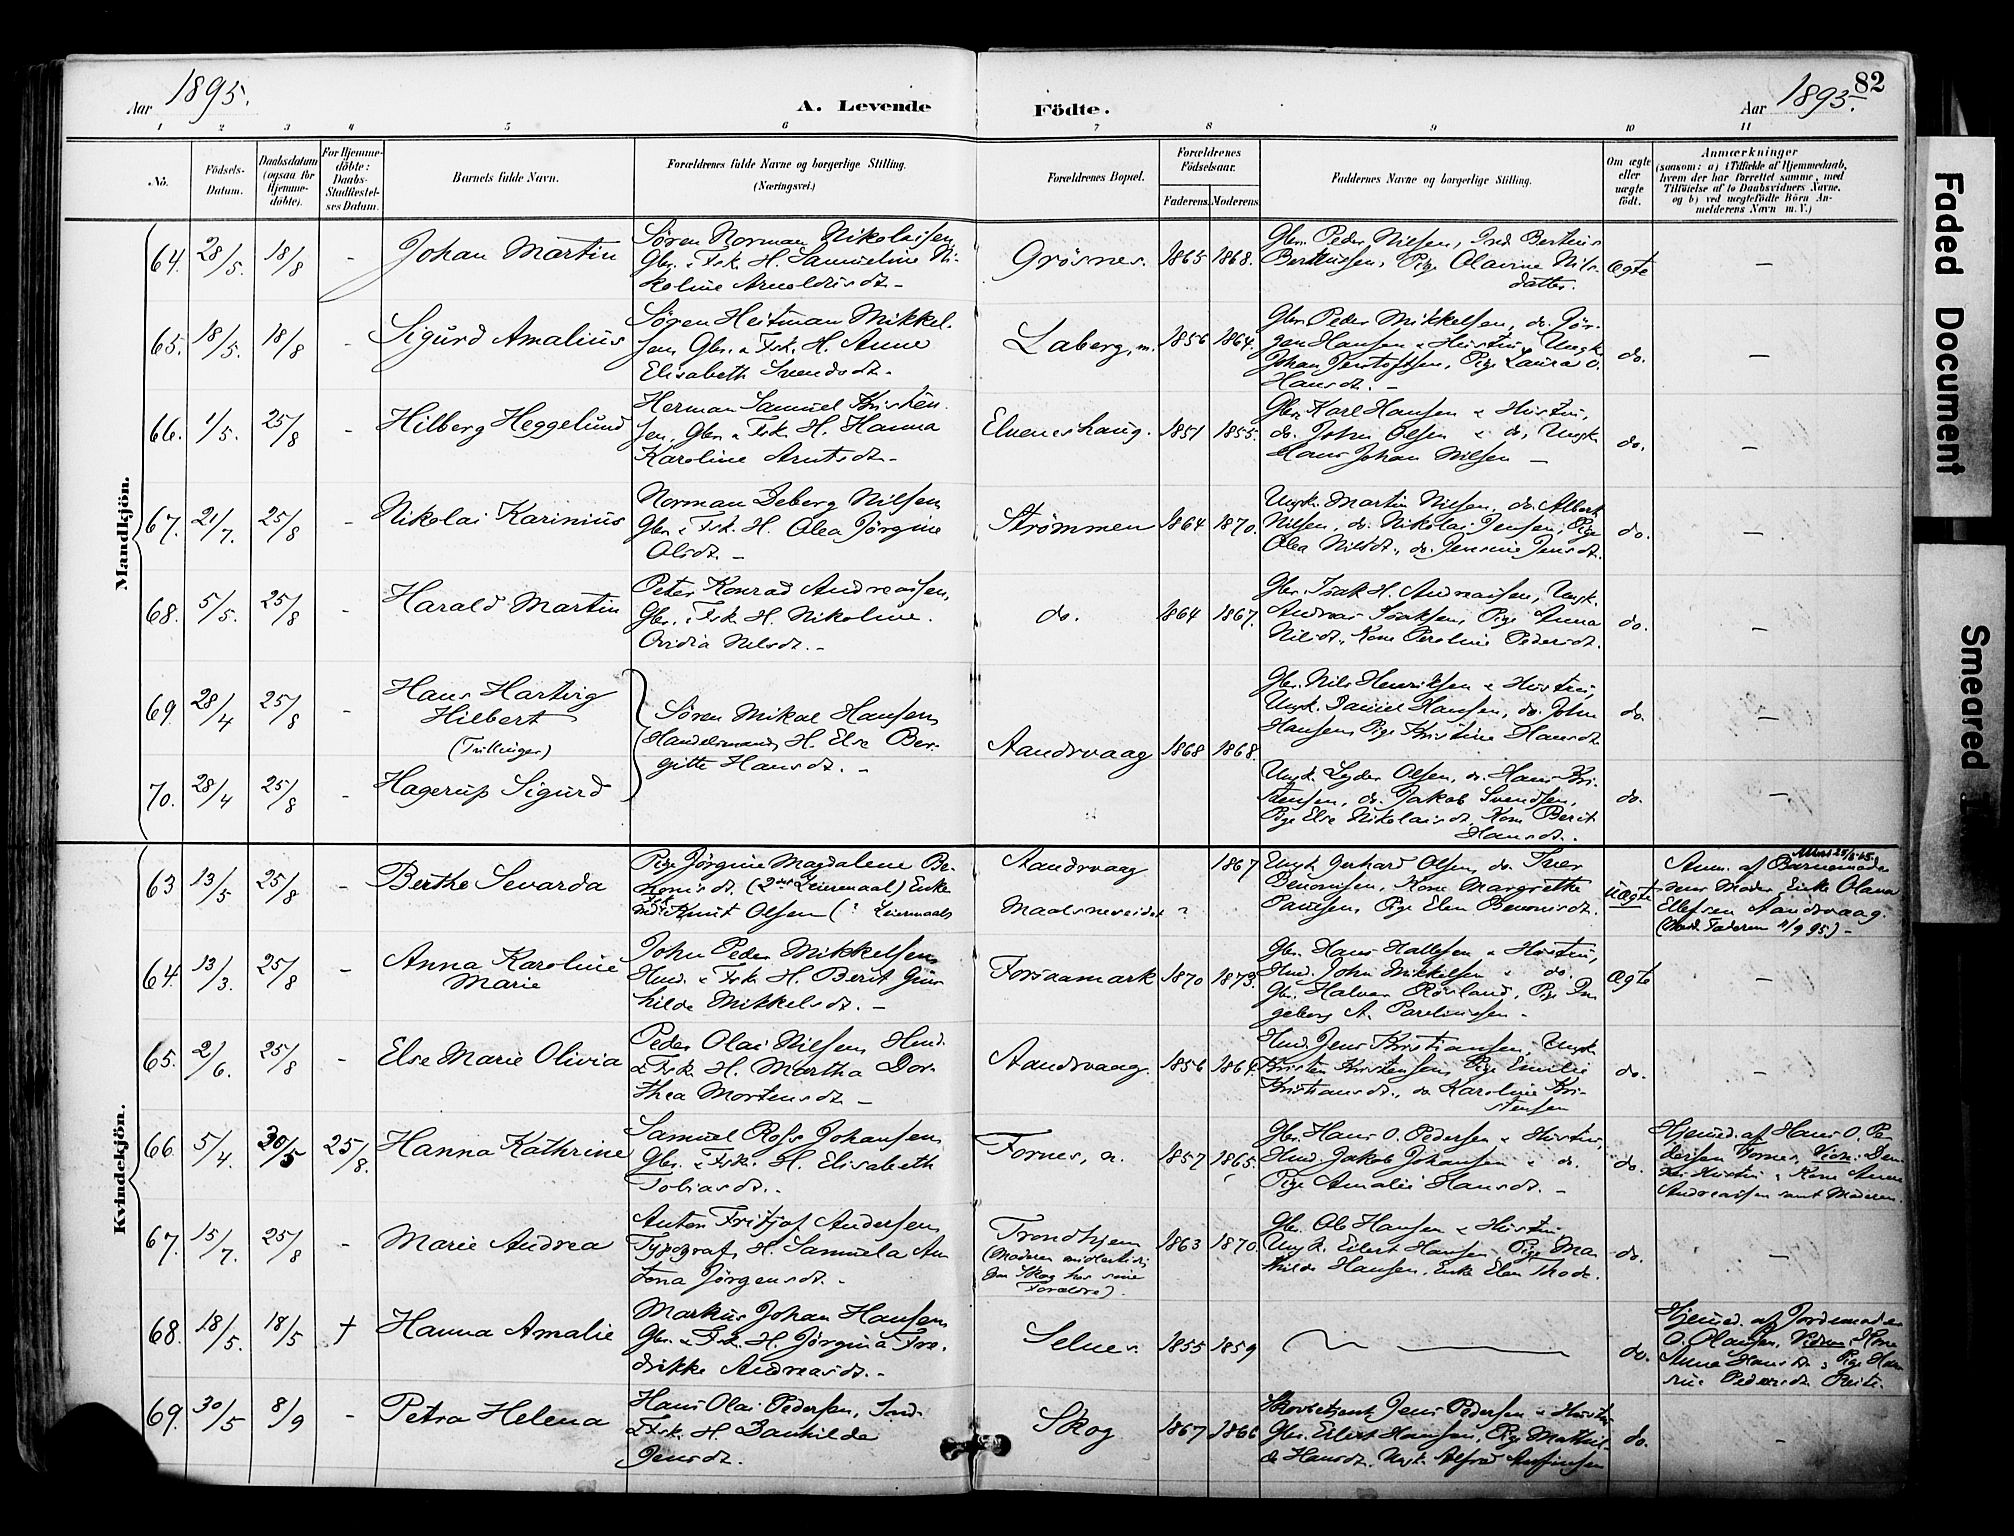 82
Aar 1895.
A. Levende Födte.
Aar 1895.
1 2 3 4 5 6 7 8 9 10 11
No.
Födsels-Datum.
Daabsdatum (ogsaa for Hjemme-döbte).
For Hjemme-döbte: Daabs-Stadfæstel-ses Datum.
Barnets fulde Navn.
Forældrenes fulde Navne og borgerlige Stilling.
(Næringsvei.)
Forældrenes Bopæl.
Forældrenes Födselsaar.
Faderens. Moderens.
Faddernes Navne og borgerlige Stilling.
Om ægte eller uægte födt.
Anmærkninger
(saasom: a) i Tilfælde af Hjemmedaab,
hvem der har forrettet samme, med
Tilföielse af to Daabsvidners Navne.
og b) ved uægtefödte Börn An-
melderens Navn m. V.)
Mandkjön.
64. 28/5. 18/8 - Johan Martin
Søren Norman Nikolaisen,
Gbr. & Fsk. H. Samueline Ni-
koline Arnoldisdt. -
Grøsnes. 1865 1868.
Gbr. Peder Nilsen, Ind. Bertius
Bertiusen, Pige Olavine Nils-
datter.
Ægte —
65. 18/5. 18/8 - Sigurd Amalius
Søren Heitman Mikkel-
sen Gbr. & Fsk. H. Anne
Elisabeth Svendsdt. -
Laberg, m. 1856 1864.
Gbr. Peder Mikkelsen, do. Jør-
gen Hansen & Hustru, Ungk.
Johan Hansdt. -
do. —
66. 1/5. 25/8 - Hilberg Heggelund
Herman Samuel Kristen-
sen, Gbr. & Fsk. H. Hanna
Karoline Arntsdt. -
Elveneshaug. 1851 1855.
Gbr. Karl Hansen & Hustru,
do. John Olsen & do, Ungk.
Hans Johan Nilsen —
do. —
67. 21/7. 25/8 - Nikolai Karinius
Norman Deberg Nilsen,
Gbr. & Fsk. H. Olea Jørgine
Olsdt. -
Strømmen 1864 1870.
Ungk. Martin Nilsen, do. Albert
Nilsen, do. Nikolai Jensen, Pige
Olea Nilsdt., do. Jensine Jensdt.
do. —
68. 5/5. 25/8 - Harald Martin
Peter Konrad Andreassen,
Gbr. & Fsk. H. Nikoline
Ovidia Nilsdt. -
do. 1864 1867.
Gbr. Isak H. Andreassen, Ungk.
Andreas Isaksen, Pige Anna
Nilsdt., Kone Peroline Pedersdt.
do. —
69. 28/4 25/8 - Hans Hartvig
Hilbert
(Tvillinger)
Søren Mikal Hansen,
Handelsmand, H. Else Ber-
gitte Hansdt. -
Aandrvaag 1868 1868.
Gbr. Nils Henriksen & Hustru,
Ungk. Daniel Hansen, do. John
Hansen, Pige Kristine Hansdt.
do. —
70. 28/4 25/8 - Hagerup Sigurd
Ungk. Lyder Olsen, do. Hans Kri-
stensen, do. Jakob Svendsen,
Pige Else Nikolaisdt. Kone Berit
Hansdt.
do. —
Kvindekjön.
63 13/5 25/8 - Berthe Sevarda
Pige Jørgine Magdalene Be-
nonisdt. (2det Leiermaal) Enke
Knut Olsen (? Leiermaal)
Aandrvaag 1867
Maalsneveidet ?
Ungk. Gerhard Olsen, do. Iver
Benonisen, Kone Margrethe
Paulsen, Pige Elen Benonisdt.
Uægte
Anm. af Barnemode-
rens Moder Enke Olava
Ellefsen Aandrvaag.
(Med. Faderen 11/9 95) -
64. 13/3. 25/8 - Anna Karoline
Marie
John Peder Mikkelsen,
Hmd. & Fsk. H. Berit Gun-
hilde Mikkelsdt. -
Forsaamark 1870 1873.
Gbr. Hans Hallesen & Hustru,
Hmd. John Mikkelsen & do.
Gbr. Halvor Rösland, Pige In-
geborg A. Parelinusen -
Ægte —
65. 2/6. 25/8 - Else Marie Olivia
Peder Olai Nilsen, Hmd.
& Fsk. H. Martha Dor-
thea Mortensdt. —
Aandrvaag. 1856 1861.
Hmd. Jens Kristiansen, Ungk.
Kristen Kristensen, Pige Emilie
Kristiansdt., do. Karoline Kri-
stensen
do. —
66. 5/4. 30/5 25/8. Hanna Kathrine
Samuel Ross Johansen,
Gbr. & Fsk. H. Elisabeth
Tobiasdt. -
Fornes, n. 1857 1865.
Gbr. Hans O. Pedersen & Hustru,
Hmd. Jakob Johansen & do.
Pige Amalie Hansdt. -
do.
Hjemd. af Hans O. Pe-
dersen Fornes, Vidn: Den-
nes Hustru & Kone Anne
Andreassen samt Moderen.
67. 15/7. 25/8 - Marie Andrea
Anton Fritjof Andersen,
Typograf, H. Samuela An-
tona Jørgensdt. -
Trondhjem
(Moderen midlertidig
paa Skog hos sine
Forældre).
1863 1870.
Gbr. Ole Hansen & Hustru,
Ungk. Eilert Hansen, Pige Ma-
thilde Hansen, Enke Elen Thode.
do. —
68. 18/5. 18/5 † Hanna Amalie
Markus Johan Hansen,
Gbr. & Fsk. H. Jørgina Fre-
drikke Andreasdt. -
Selnes 1855 1859
do.
Hjemd. af Jordemoder
O. Olausen, Vidn: Kone
Anna Hansdt. & Pige Han-
sine Pedersdt.
69. 30/5 8/9 - Petra Helena
Hans Olai Pedersen, Ind.
& Fsk. H. Danhilde
Jensdt.
Skog 1867 1866
Skovbetjent Jens Pedersen & Hustru
Gbr. Eilert Hansen, Pige Mathil-
de Hansdt. Ungk. Alfred
do. -
Faded Document
Smeared